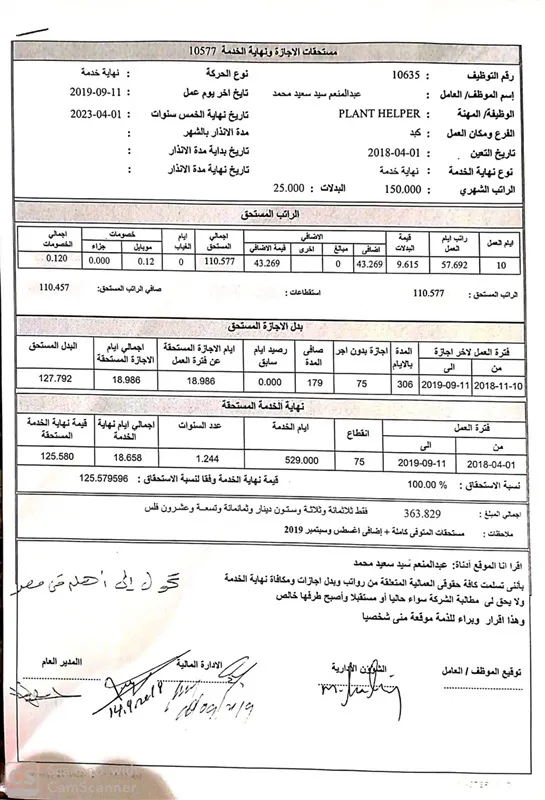 مستحقات الاجازة ونهاية الخدمة 10577
رقم التوظيف : 10635 نوع الحركة : نهاية خدمة
إسم الموظف/ العامل : عبدالمنعم سيد سعيد محمد تايخ اخر يوم عمل : 2019-09-11
الوظيفة/ المهنة : PLANT HELPER تاريخ نهاية الخمس سنوات : 2023-04-01
الفرع ومكان العمل : كبد مدة الانذار بالشهر :
تاريخ التعين : 2018-04-01 تاريخ بداية مدة الانذار :
نوع نهاية الخدمة : نهاية خدمة تاريخ نهاية مدة الانذار :
الراتب الشهري : 150.000 البدلات : 25.000
الراتب المستحق
ايام العمل راتب ايام العمل قيمة البدلات الاضافي اضافى مبالغ اخرى قيمة الاضافي اجمالي المستحق ايام الغياب خصومات موبايل جزاء اجمالي الخصومات
10 57.692 9.615 43.269 0 43.269 110.577 0 0.12 0.000 0.120
الراتب المستحق : 110.577 استقطاعات : صافي الراتب المستحق: 110.457
بدل الاجازة المستحق
فترة العمل لاخر اجازة من الى المدة بالايام اجازة بدون اجر صافى المدة رصيد ايام سابق ايام الاجازة المستحقة عن فترة العمل اجمالي ايام الاجازة المستحقة البدل المستحق
2018-11-10 2019-09-11 306 75 179 0.000 18.986 18.986 127.792
نهاية الخدمة المستحقة
فترة العمل من الى انقطاع ايام الخدمة عدد السنوات اجمالي ايام نهاية الخدمة قيمة نهاية الخدمة المستحقة
2018-04-01 2019-09-11 75 529.000 1.244 18.658 125.580
نسبة الاستحقاق : 100.00 % قيمة نهاية الخدمة وفقا لنسبة الاستحقاق : 125.579596
اجمالي المبلغ : 363.829 فقط ثلاثمائة وثلاثة وستون دينار وثمانمائة وتسعة وعشرون فلس
ملاحظات : مستحقات المتوفى كاملة + إضافى اغسطس وسبتمبر 2019
اقرا انا الموقع أدناة: عبدالمنعم سيد سعيد محمد
بأننى تسلمت كافة حقوقى العمالية المتعلقة من رواتب وبدل اجازات ومكافاة نهاية الخدمة
ولا يحق لى مطالبة الشركة سواء حاليا أو مستقبلا وأصبح طرفها خالص
وهذا اقرار وبراء للذمة موقعة منى شخصيا
إلى أهله فى مصر
توقيع الموظف / العامل الشؤون الادارية الادارة المالية االمدير العام
14.9.2019
CamScanner